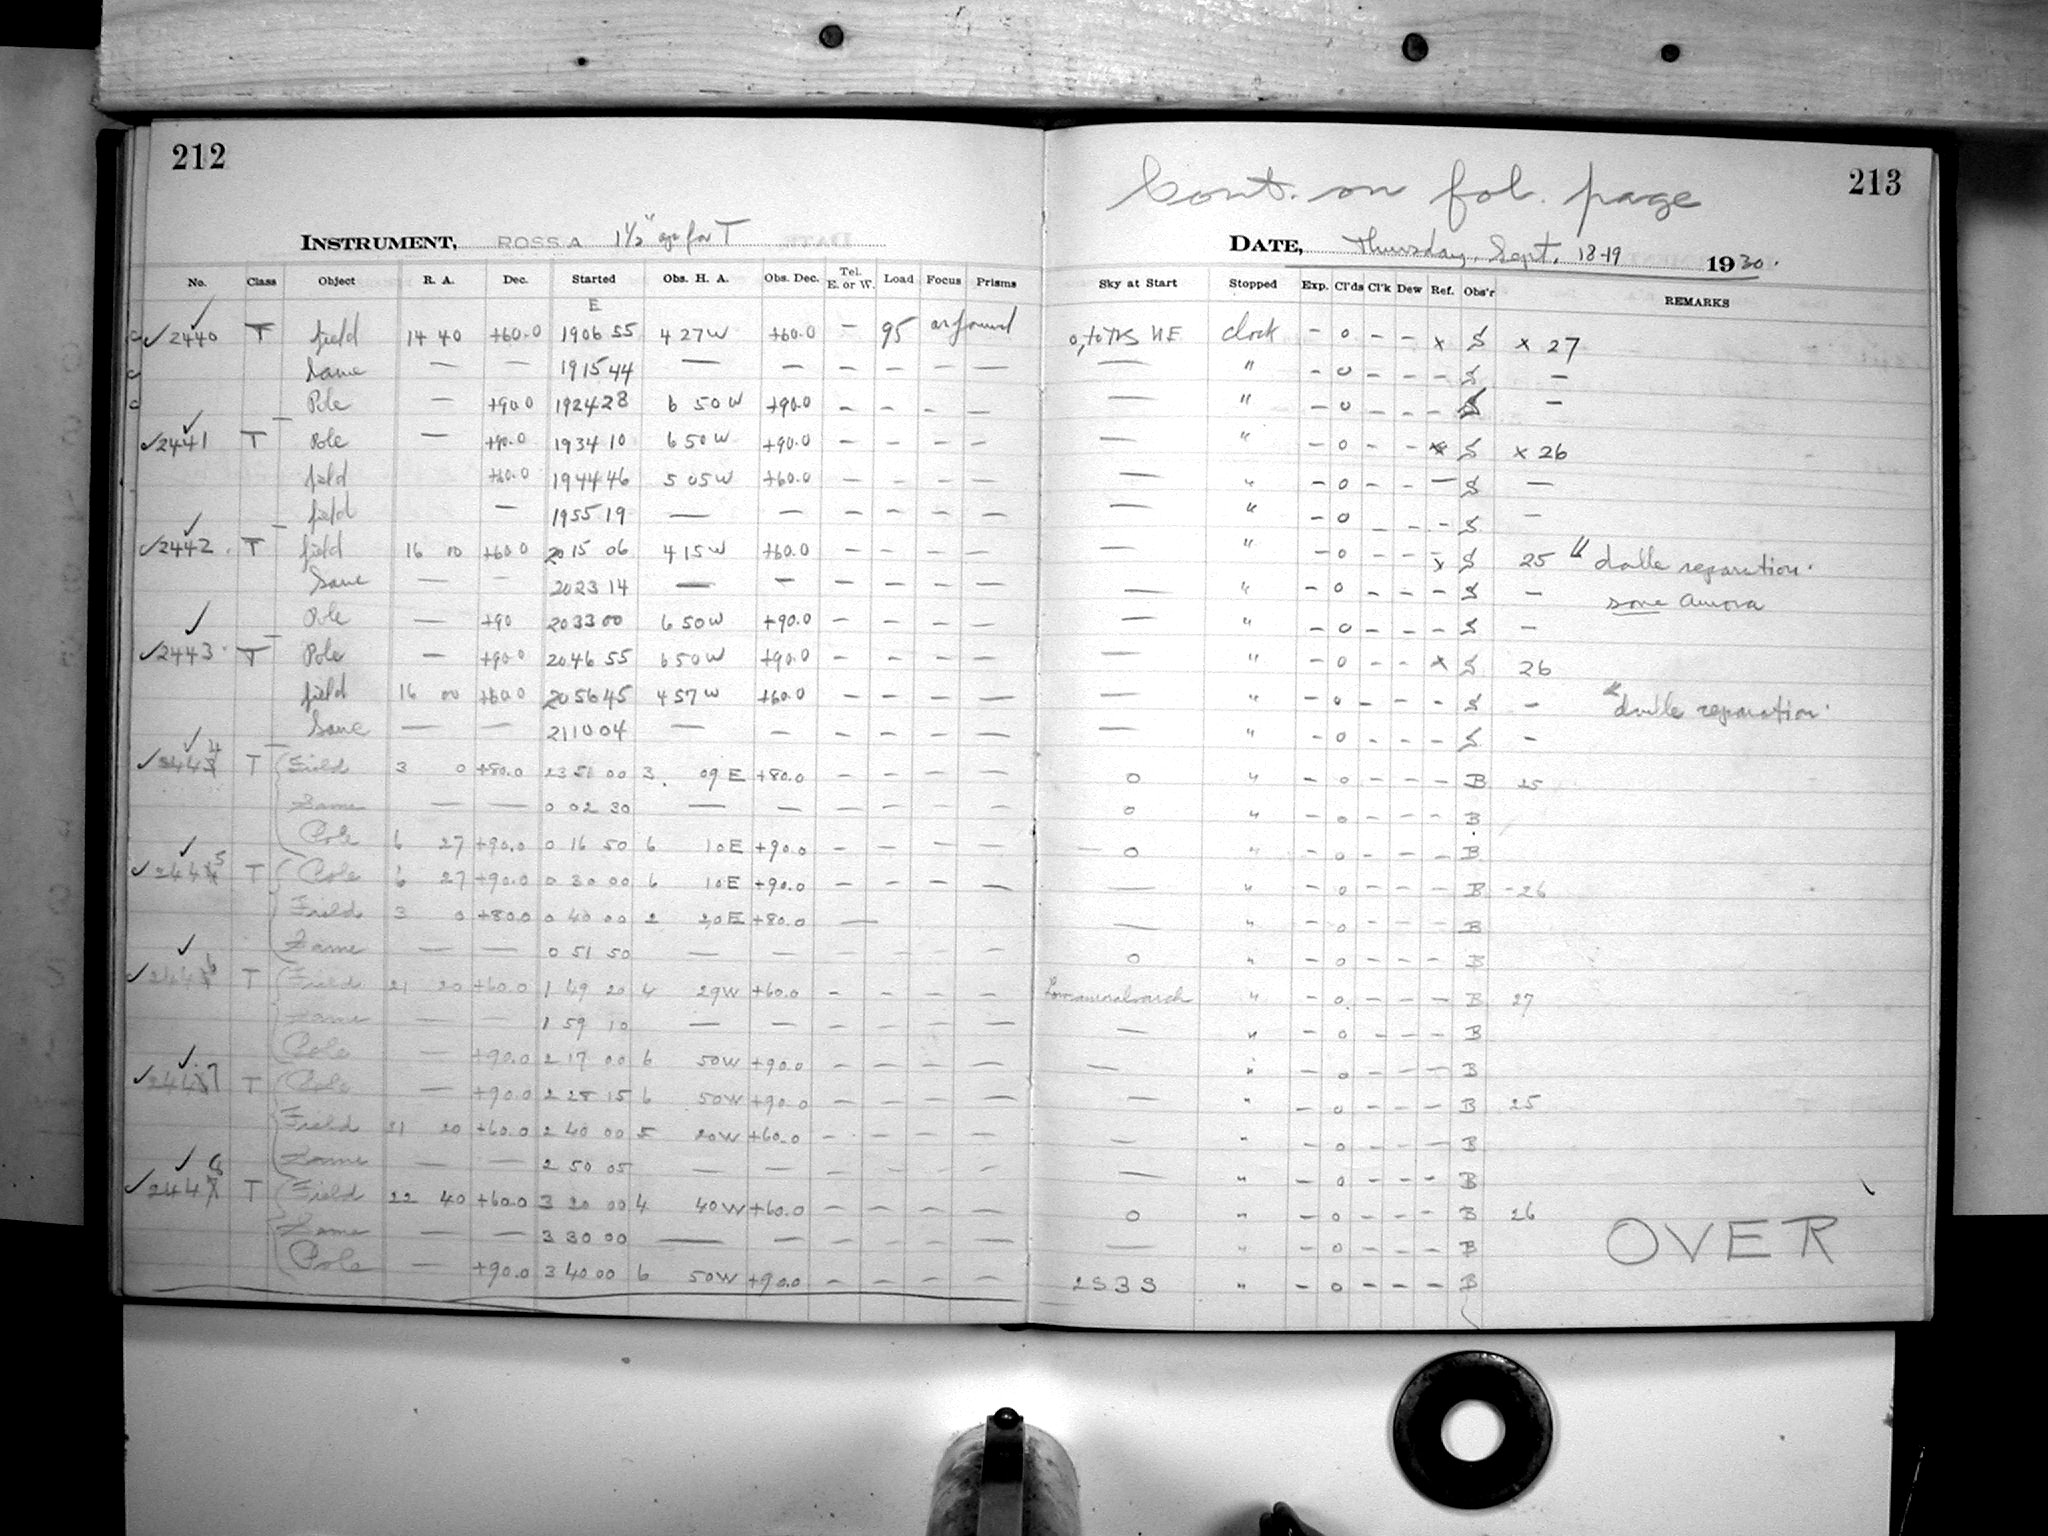 212
INSTRUMENT, ROSS A 1½" ap for T
No. Class Object R. A. Dec. Started Obs. H. A. Obs. Dec. Tel. E. or W. Load Focus Prisms
E
✓2440 T field 14 40 +60.0 19 06 55 4 27 W +60.0 — 95 as found
Same — — 19 15 44 — — — — — —
Pole — +90.0 19 24 28 6 50 W +90.0 — — — —
✓2441 T Pole — +90.0 19 34 10 6 50 W +90.0 — — — —
field +60.0 19 44 46 5 05 W +60.0 — — — —
field — 19 55 19 — — — — — —
✓2442 T field 16 00 +60.0 20 15 06 4 15 W +60.0 — — — —
Same — — 20 23 14 — — — — — —
Pole — +90 20 33 00 6 50 W +90.0 — — — —
✓2443 T Pole — +90.0 20 46 55 6 50 W +90.0 — — — —
field 16 00 +60.0 20 56 45 4 57 W +60.0 — — — —
Same — — 21 10 04 — — — — — —
✓2444 T Field 3 0 +80.0 23 51 00 3 09 E +80.0 — — — —
Same — — 0 02 30 — — — — — —
Pole 6 27 +90.0 0 16 50 6 10 E +90.0 — — — —
✓2445 T Pole 6 27 +90.0 0 30 00 6 10 E +90.0 — — — —
Field 3 0 +80.0 0 40 00 2 20 E +80.0 —
Same — — 0 51 50 — — — — — —
✓2446 T Field 21 20 +60.0 1 49 20 4 29 W +60.0 — — — —
Same — — 1 59 10 — — — — — —
Pole — +90.0 2 17 00 6 50 W +90.0 — — — —
✓2447 T Pole — +90.0 2 28 15 6 50 W +90.0 — — — —
Field 21 20 +60.0 2 40 00 5 20 W +60.0 — — — —
Same — — 2 50 05 — — — — — —
✓2448 T Field 22 40 +60.0 3 20 00 4 40 W +60.0 — — — —
Same — — 3 30 00 — — — — — —
Pole — +90.0 3 40 00 6 50 W +90.0 — — — —
213
Cont. on fol. page
DATE, Thursday, Sept. 18-19 1930.
Sky at Start Stopped Exp. Cl'ds Cl'k Dew Ref. Obs'r REMARKS
NE clock — 0 — — x S x 27
— " — 0 — — — S —
— " — 0 — — — S —
— " — 0 — — x S x 26
— " — 0 — — — S —
— " — 0 — — — S —
— " — 0 — — x S 25 " double reparation.
— " — 0 — — — S — some Aurora
— " — 0 — — — S —
— " — 0 — — x S 26
— " — 0 — — — S — " double reparation.
— " — 0 — — — S —
0 " — 0 — — — B 25
0 " — 0 — — — B
0 " — 0 — — — B
— " — 0 — — — B -26
— " — 0 — — — B
0 " — 0 — — — B
Low auroral arch " — 0 — — — B 27
— " — 0 — — — B
— " — 0 — — — B
— " — 0 — — — B 25
— " — 0 — — — B
— " — 0 — — — B
0 " — 0 — — — B 26
— " — 0 — — — B
2 S 3 S " — 0 — — — B
OVER